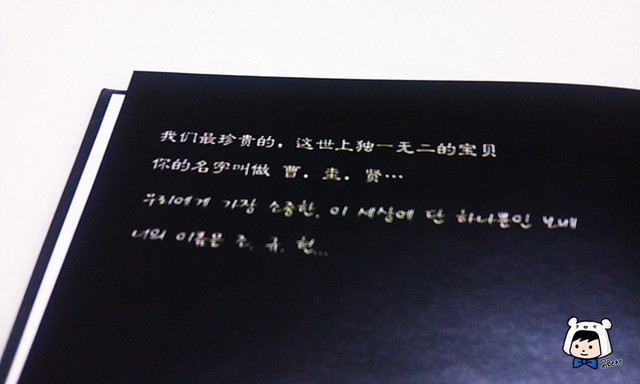 我们最珍贵的，这世上独一无二的宝贝
你的名字叫做 曹．圭．贤…
우리에게 가장 소중한, 이 세상에 단 하나뿐인 보배
너의 이름은 조. 규. 현...